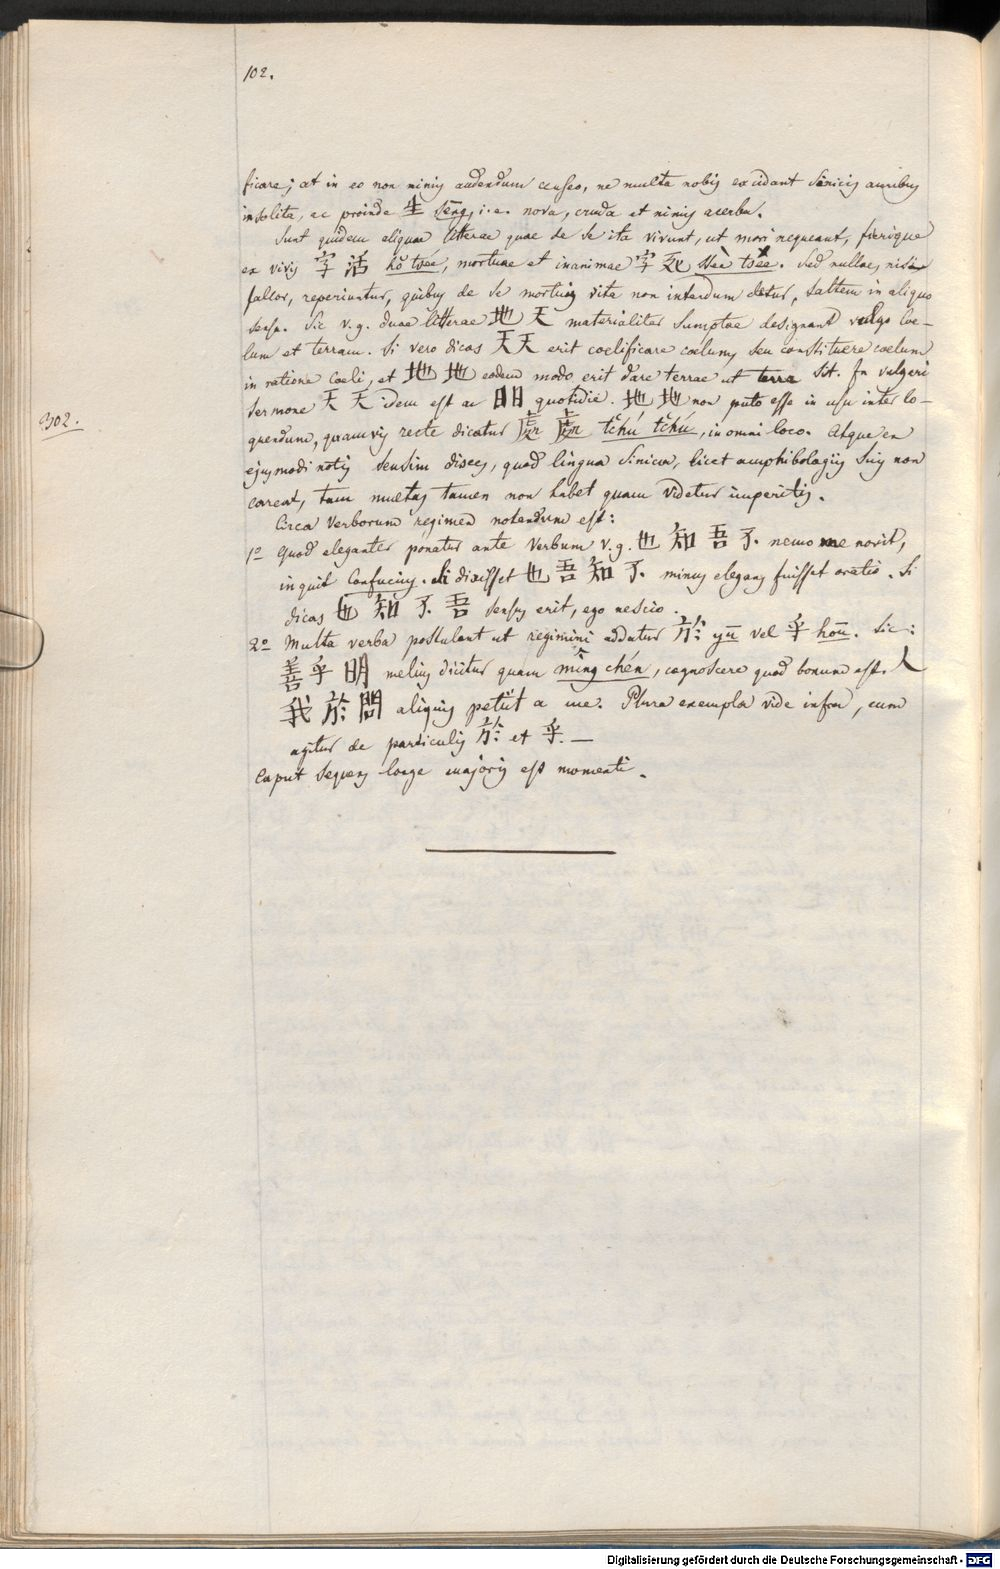 102.
ficare; at in eo non nimis audendum censeo, ne multa nobis excidant Sinicis auribus
insolita, ac proinde 生 sēng, i.e. nova, cruda et nimis acerba.
Sunt quidem aliquae litterae quae de se ita vivunt, ut mori nequeant, fierique
ex vivis 字 活 hŏ tsée, mortuae et inanimae 字 死 tsée. Sed nullae, nisi
fallor, reperiuntur, quibus de se mortuis vita non interdum detur, saltem in aliquo
sensu. Sic v.g. duae litterae 地 天 materialiter sumptae designant vulgo coe-
lum et terram. Si vero dicas 天 天 erit coelificare coelum, seu constituere coelum
in ratione coeli, et 地 地 eodem modo erit dare terrae ut terra sit. In vulgari
302.
sermone 天 天 idem est ac 日 日 quotidie. 地 地 non puto esse in usu inter lo-
quendum, quamvis recte dicatur 處 處 tchú tchú, in omni loco. Atque ex
ejusmodi notis sensim disces, quod lingua Sinica, licet amphibologiis suis non
careat, tam multas tamen non habet quam videtur imperitis.
Circa verborum regimen notandum est:
1º Quod eleganter ponatur ante verbum v.g. 也 知 吾 不 nemo me novit,
inquit Confucius. Si dixisset 也 吾 知 不 minus elegans fuisset oratio. Si
dicas 也 知 不 吾 sensus erit, ego nescio.
2º Multa verba postulant ut regimini addatur 於 yū vel 乎 hoū. Sic:
善 乎 明 melius dicitur quam mîng chén, cognoscere quod bonum est. 人
我 於 問 aliquis petiit a me. Plura exempla vide infra, cum
agitur de particulis 於 et 乎. —
Caput sequens longe majoris est momenti.
Digitalisierung gefördert durch die Deutsche Forschungsgemeinschaft - DFG